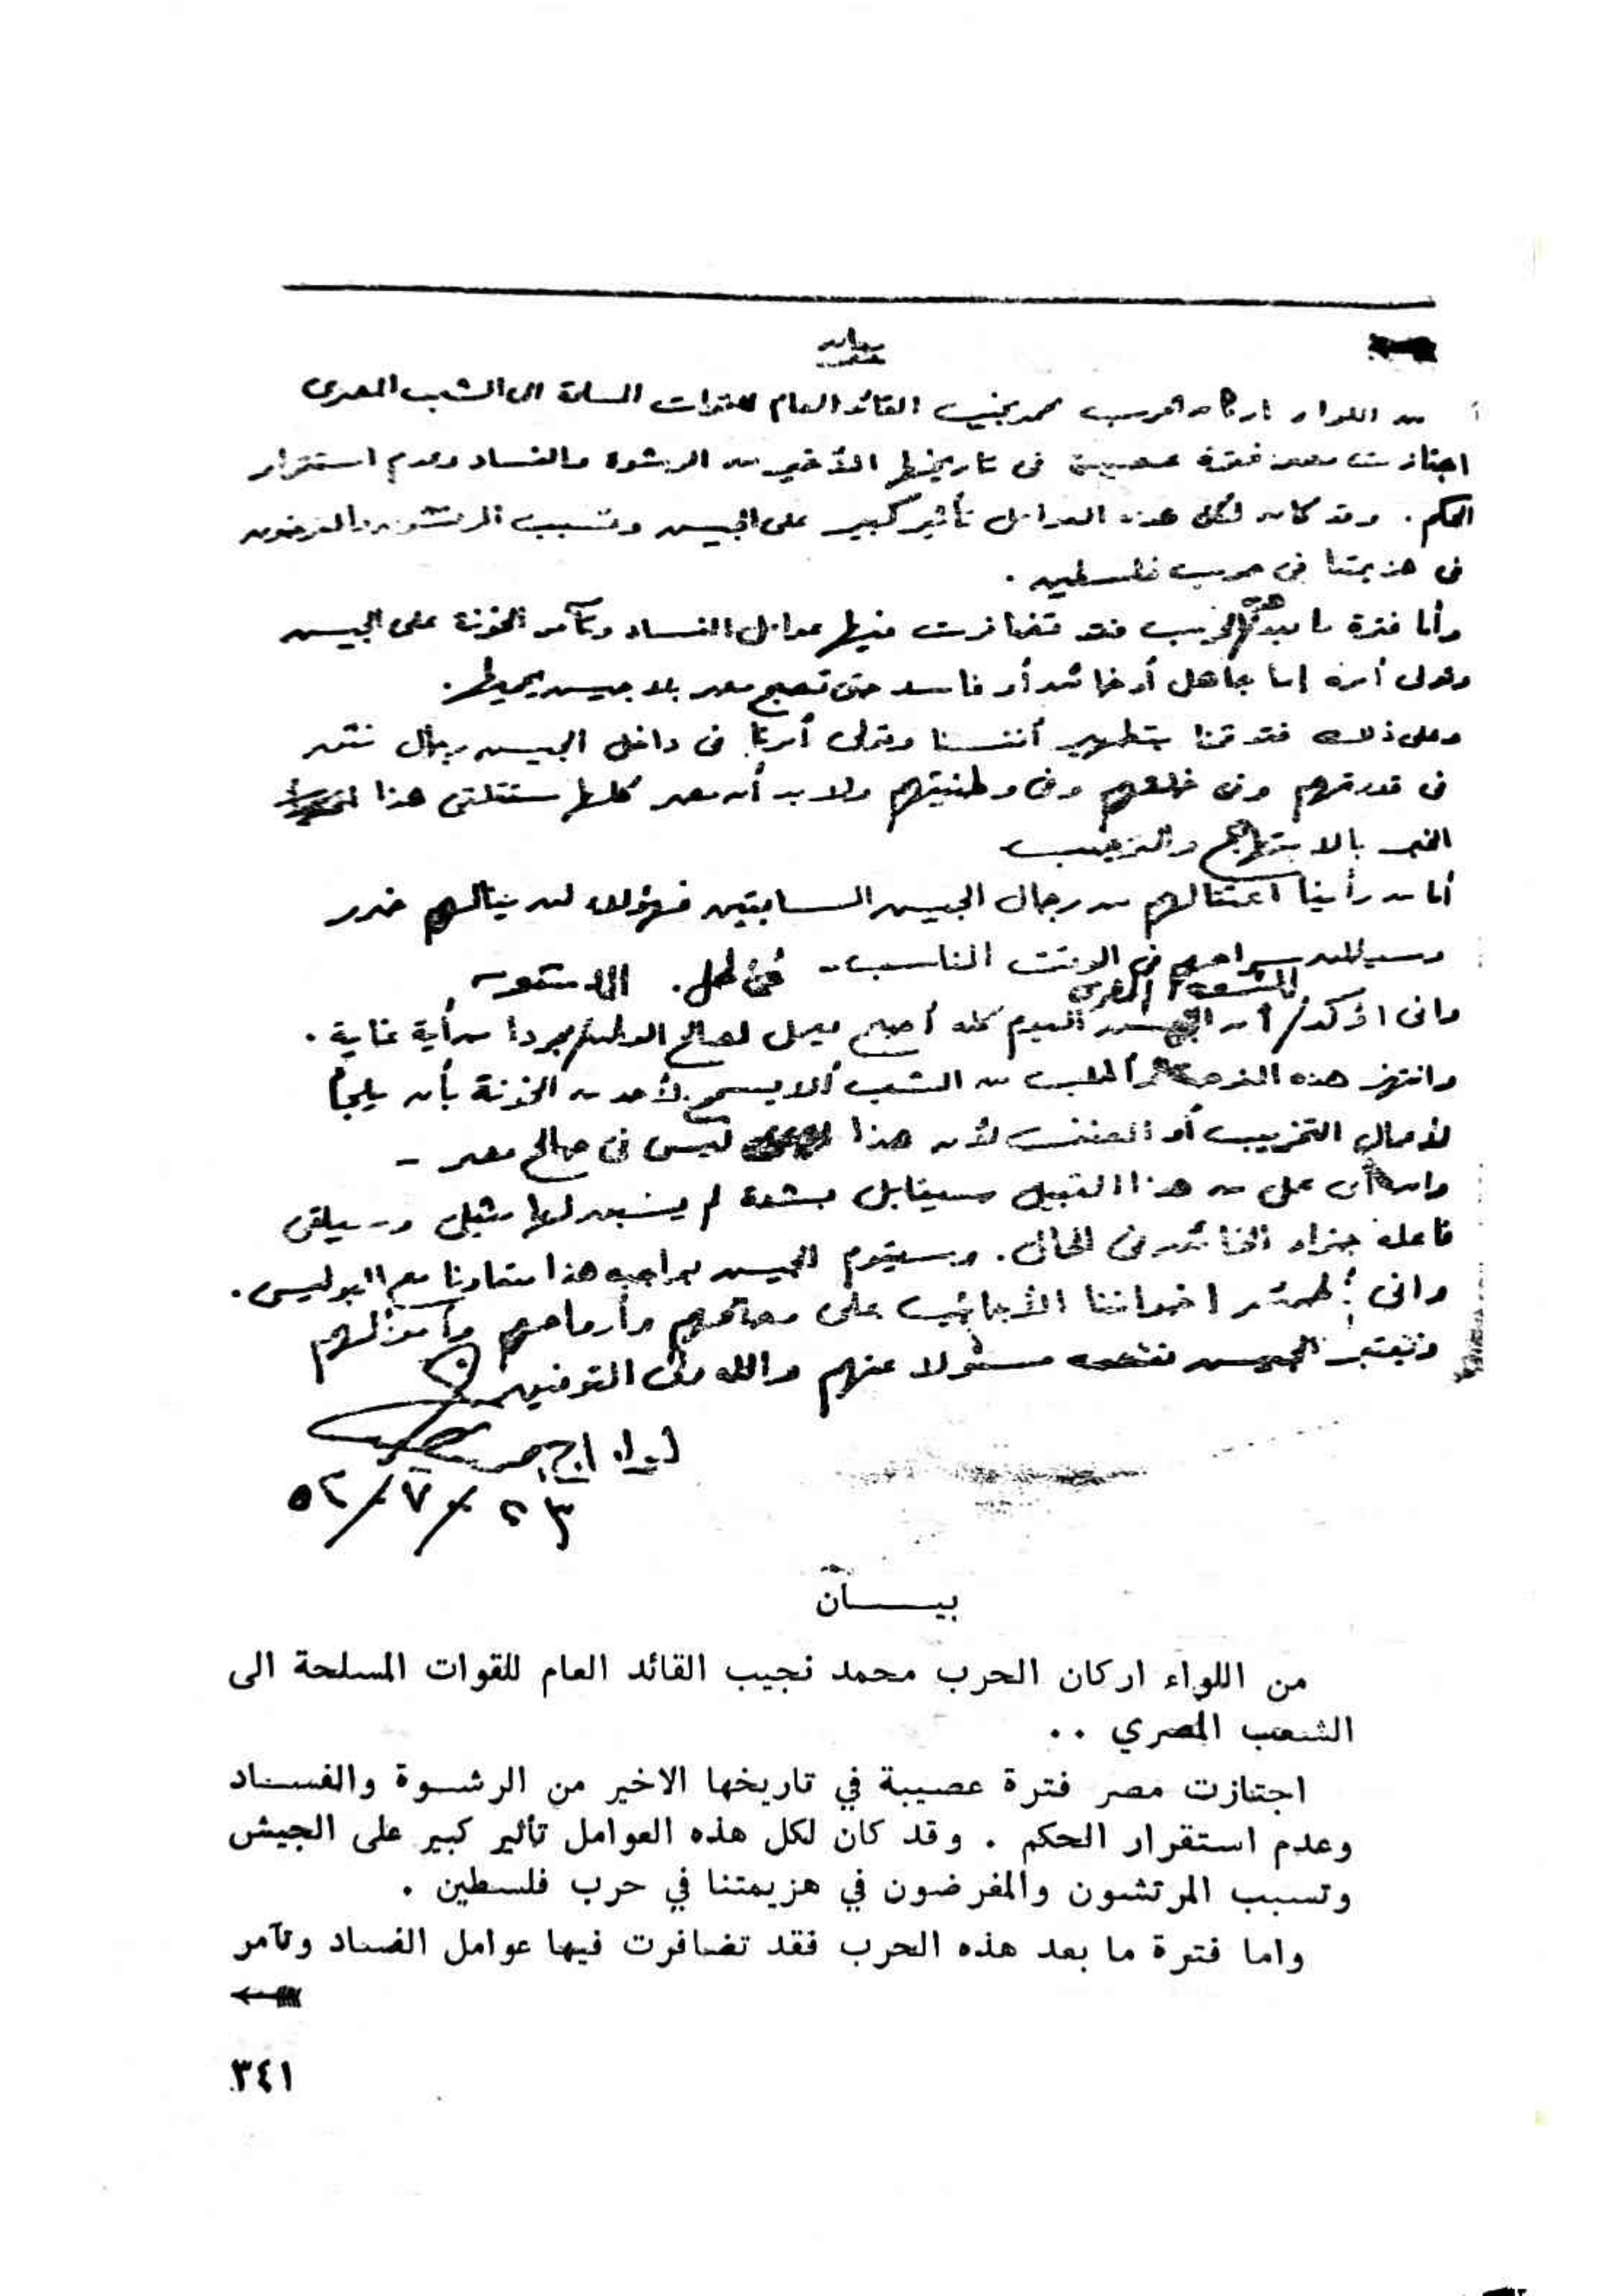 بيان
من اللواء اركان الحرب محمد نجيب القائد العام للقوات المسلحة الى الشعب المصرى
اجتازت مصر فترة عصيبة فى تاريخها الأخير من الرشوة والفساد وعدم استقرار
الحكم . وقد كان لكل هذه العوامل تأثير كبير على الجيش وتسبب المرتشون والمغرضون
فى هزيمتنا فى حرب فلسطين .
وأما فترة ما بعد هذه الحرب فقد تضافرت فيها عوامل الفساد وتآمر الخونة على الجيش
وتولى أمره إما جاهل أو خائن أو فاسد حتى تصبح مصر بلا جيش يحميها .
وعلى ذلك فقد قمنا بتطهير أنفسنا وتولى أمرنا فى داخل الجيش رجال نثق
فى قدرتهم وفى خلقهم وفى وطنيتهم ولا بد أن مصر كلها ستتلقى هذا
الخبر بالابتهاج والترحيب
أما من رأينا اعتقالهم من رجال الجيش السابقين فهؤلاء لن ينالهم ضرر
وسيطلق سراحهم فى الوقت المناسب -
للشعب المصرى
وانى اؤكد أن الجيش اليوم كله أصبح يعمل لصالح الوطن مجردا من أية غاية .
وانتهز هذه الفرصة وأطلب من الشعب ألا يسمح لأحد من الخونة بأن يلجأ
لأعمال التخريب أو العنف لأن هذا ليس فى صالح مصر -
وان أى عمل من هذا القبيل سيقابل بشدة لم يسبق لها مثيل وسيلقى
فاعله جزاء الخائن فى الحال . وسيقوم الجيش بواجبه هذا متعاونا مع البوليس .
وانى أطمئن اخواننا الأجانب على مصالحهم وأرواحهم وأموالهم
ويعتبر الجيش نفسه مسئولا عنهم والله ولى التوفيق
لواء ا ح
٢٣ / ٧ / ٥٢
بيـــــان
من اللواء اركان الحرب محمد نجيب القائد العام للقوات المسلحة الى
الشعب المصري ..
اجتازت مصر فترة عصيبة في تاريخها الاخير من الرشوة والفساد
وعدم استقرار الحكم . وقد كان لكل هذه العوامل تأثير كبير على الجيش
وتسبب المرتشون والمغرضون في هزيمتنا في حرب فلسطين .
واما فترة ما بعد هذه الحرب فقد تضافرت فيها عوامل الفساد وتآمر
٣٤١